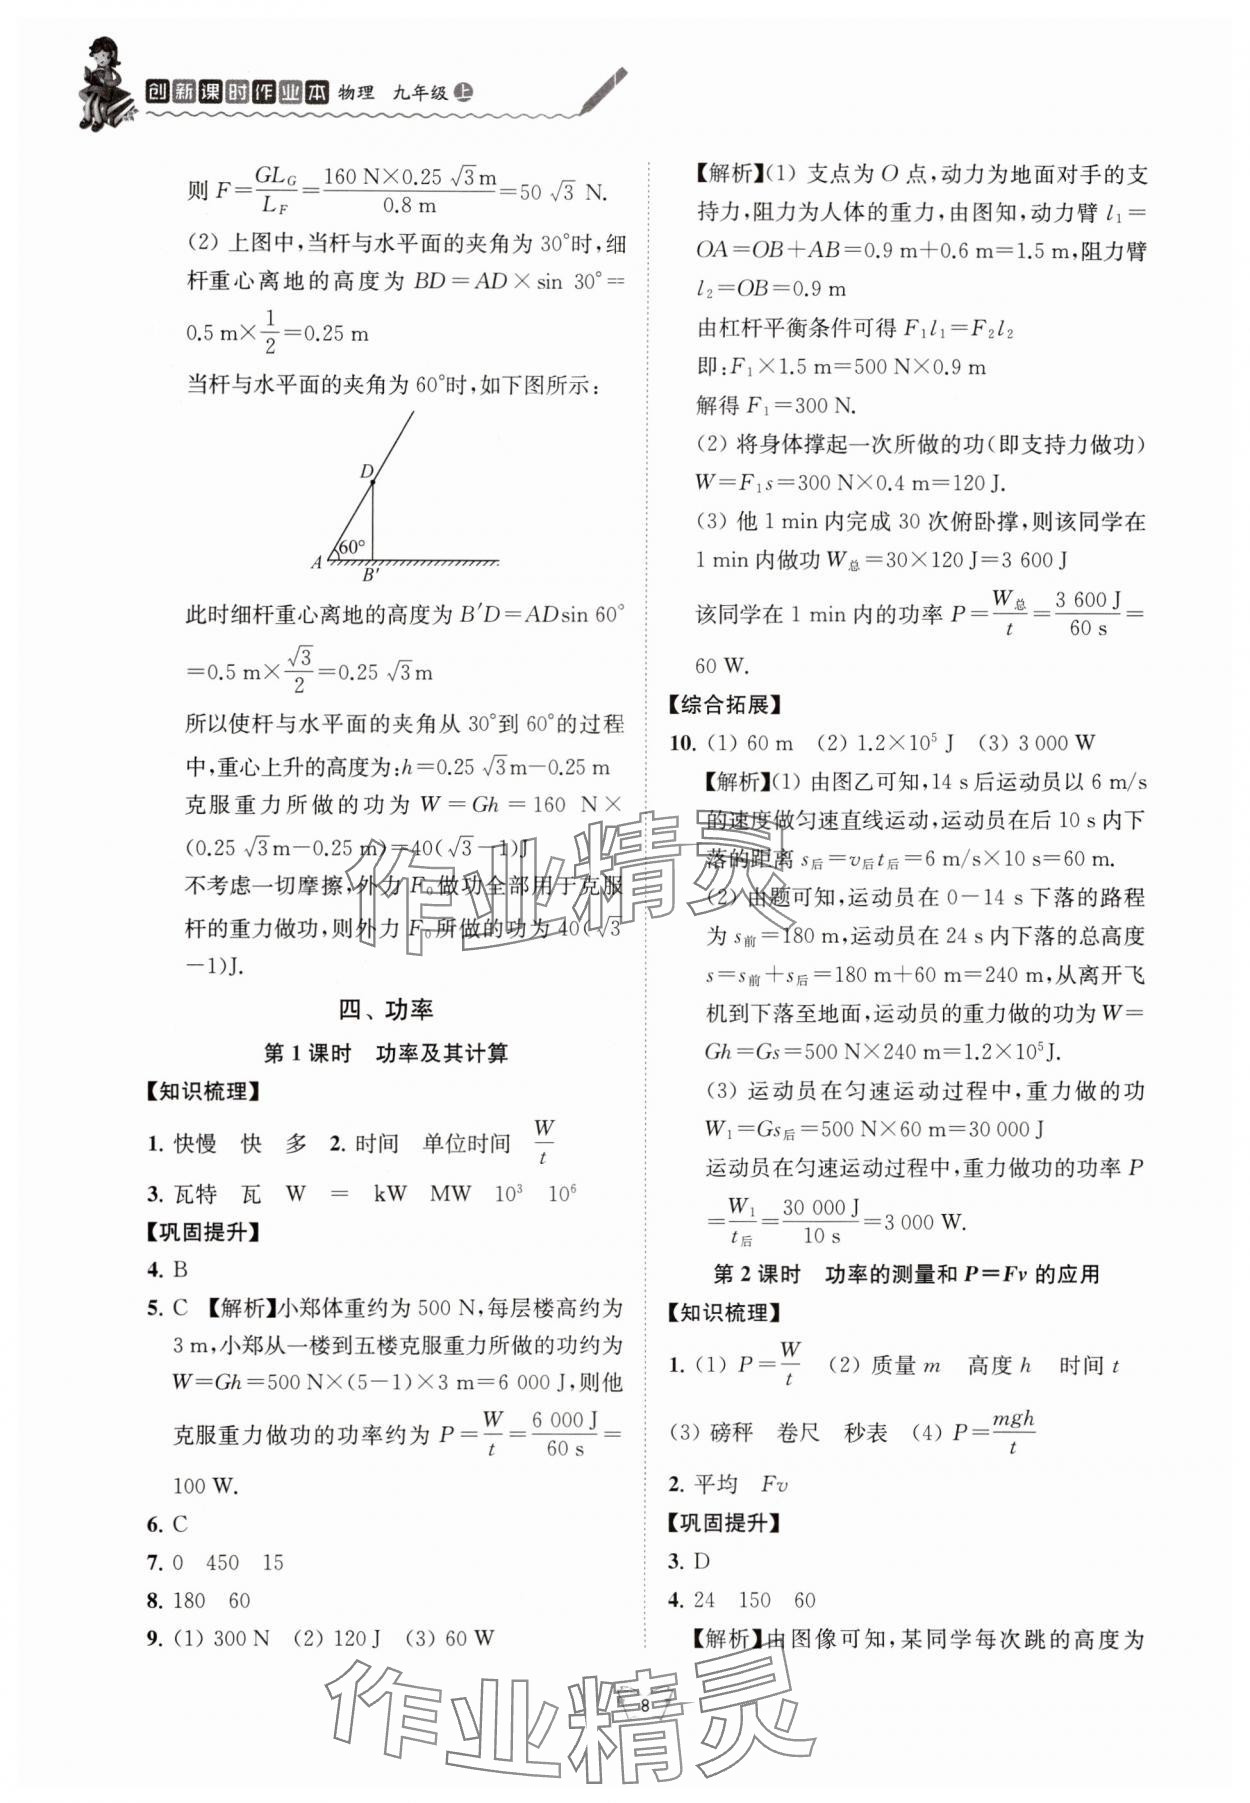 创新课时作业本 物理 九年级上
则 F=GL_G/L_F=160 N×0.25√3 m/0.8 m=50√3 N.
(2) 上图中,当杆与水平面的夹角为 30°时,细
杆重心离地的高度为 BD=AD×sin 30°=
0.5 m×1/2=0.25 m
当杆与水平面的夹角为 60°时,如下图所示:
D
A 60°
B′
此时细杆重心离地的高度为 B′D=ADsin 60°
=0.5 m×√3/2=0.25√3 m
所以使杆与水平面的夹角从 30°到 60°的过程
中,重心上升的高度为:h=0.25√3 m-0.25 m
克服重力所做的功为 W=Gh=160 N×
(0.25√3 m-0.25 m)=40(√3-1)J
不考虑一切摩擦,外力 F₀ 做功全部用于克服
杆的重力做功,则外力 F₀ 所做的功为 40(√3
-1)J.
四、功率
第 1 课时 功率及其计算
【知识梳理】
1. 快慢 快 多 2. 时间 单位时间 W/t
3. 瓦特 瓦 W = kW MW 10³ 10⁶
【巩固提升】
4. B
5. C 【解析】小郑体重约为 500 N,每层楼高约为
3 m,小郑从一楼到五楼克服重力所做的功约为
W=Gh=500 N×(5-1)×3 m=6 000 J,则他
克服重力做功的功率约为 P=W/t=6 000 J/60 s=
100 W.
6. C
7. 0 450 15
8. 180 60
9. (1) 300 N (2) 120 J (3) 60 W
【解析】(1) 支点为 O 点,动力为地面对手的支
持力,阻力为人体的重力,由图知,动力臂 l₁=
OA=OB+AB=0.9 m+0.6 m=1.5 m,阻力臂
l₂=OB=0.9 m
由杠杆平衡条件可得 F₁l₁=F₂l₂
即:F₁×1.5 m=500 N×0.9 m
解得 F₁=300 N.
(2) 将身体撑起一次所做的功(即支持力做功)
W=F₁s=300 N×0.4 m=120 J.
(3) 他 1 min 内完成 30 次俯卧撑,则该同学在
1 min 内做功 W总=30×120 J=3 600 J
该同学在 1 min 内的功率 P=W总/t=3 600 J/60 s=
60 W.
【综合拓展】
10. (1) 60 m (2) 1.2×10⁵ J (3) 3 000 W
【解析】(1) 由图乙可知,14 s 后运动员以 6 m/s
的速度做匀速直线运动,运动员在后 10 s 内下
落的距离 s后=v后t后=6 m/s×10 s=60 m.
(2) 由题可知,运动员在 0-14 s 下落的路程
为 s前=180 m,运动员在 24 s 内下落的总高度
s=s前+s后=180 m+60 m=240 m,从离开飞
机到下落至地面,运动员的重力做的功为 W=
Gh=Gs=500 N×240 m=1.2×10⁵J.
(3) 运动员在匀速运动过程中,重力做的功
W₁=Gs后=500 N×60 m=30 000 J
运动员在匀速运动过程中,重力做功的功率 P
=W₁/t后=30 000 J/10 s=3 000 W.
第 2 课时 功率的测量和 P=Fv 的应用
【知识梳理】
1. (1) P=W/t (2) 质量 m 高度 h 时间 t
(3) 磅秤 卷尺 秒表 (4) P=mgh/t
2. 平均 Fv
【巩固提升】
3. D
4. 24 150 60
【解析】由图像可知,某同学每次跳的高度为
8
作业精灵
作业精灵